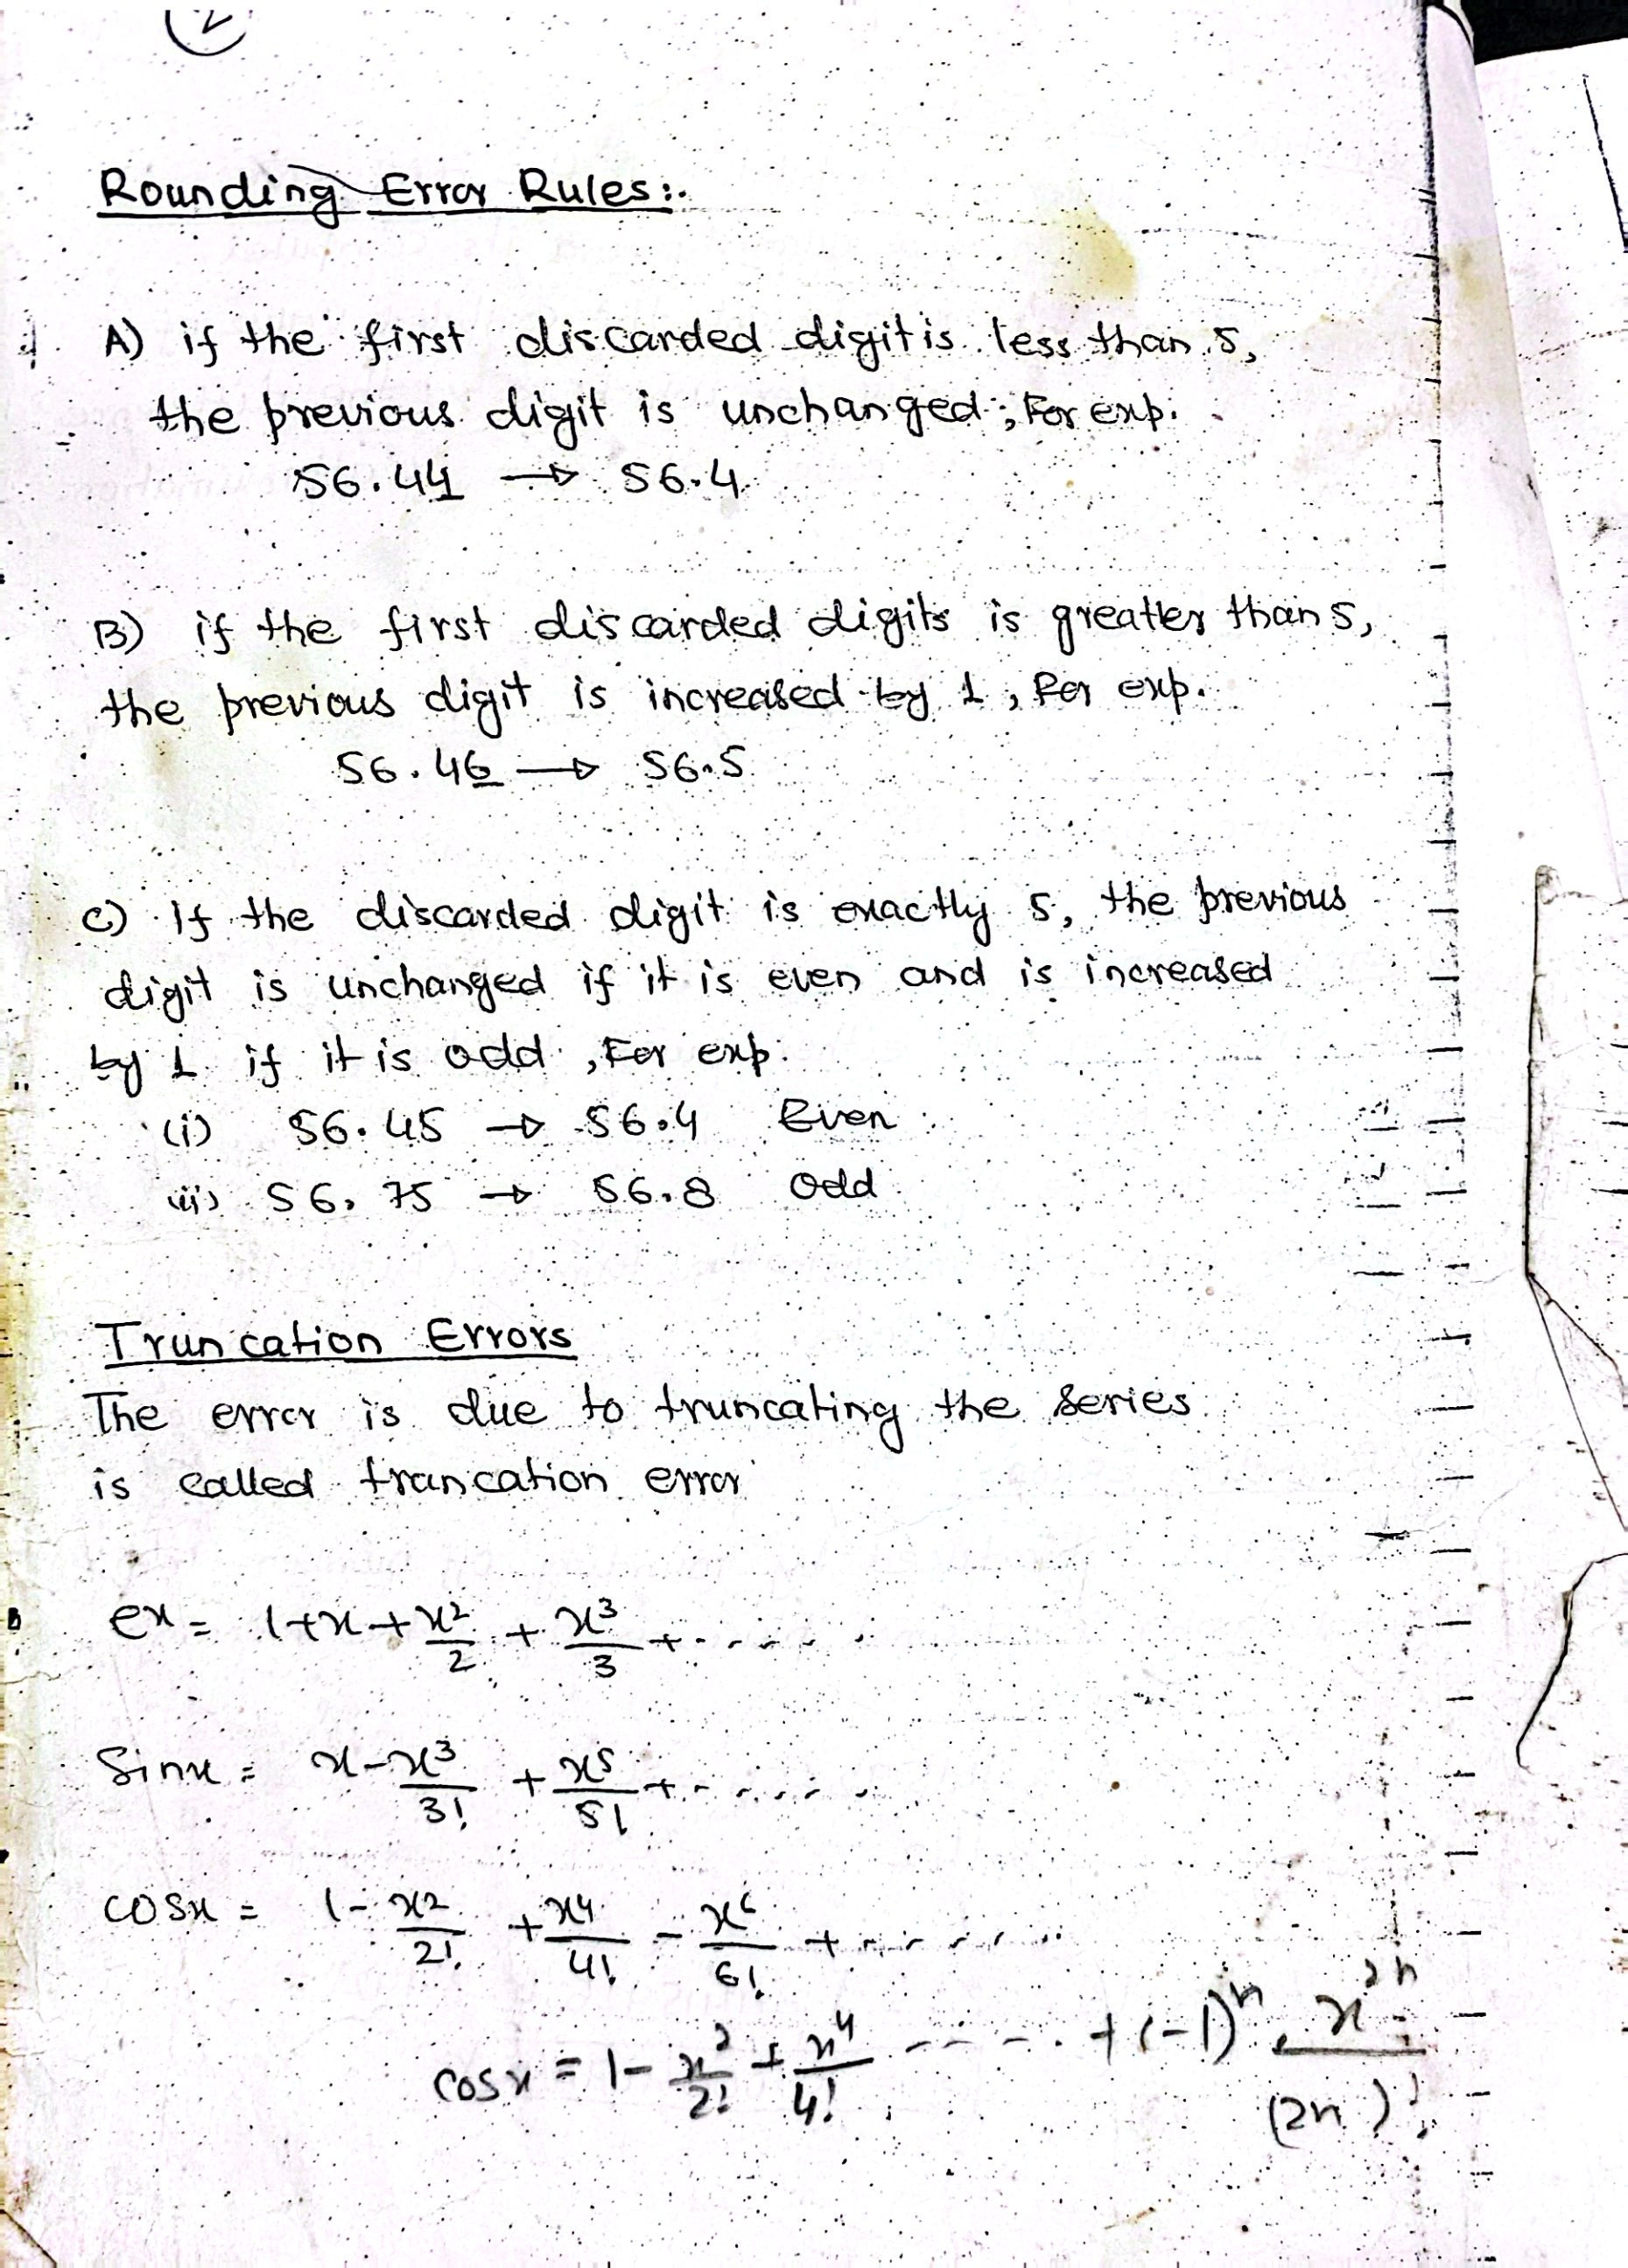 2
Rounding Error Rules:-
A) if the first discarded digit is less than 5,
the previous digit is unchanged, For exp.
56.44 → 56.4
B) if the first discarded digits is greater than 5,
the previous digit is increased by 1, For exp.
56.46 → 56.5
C) If the discarded digit is exactly 5, the previous
digit is unchanged if it is even and is increased
by 1 if it is odd, For exp.
(i) 56.45 → 56.4 Even
(ii) 56.75 → 56.8 Odd
Truncation Errors
The error is due to truncating the series
is called trancation error
eˣ = 1+x+x²/2 + x³/3 + ......
Sinx = x-x³/3! + x⁵/5! + .......
cosx = 1- x²/2! + x⁴/4! - x⁶/6! + .......
cosx = 1- x²/2! + x⁴/4! ----- + (-1)ⁿ . x²ⁿ/(2n)!